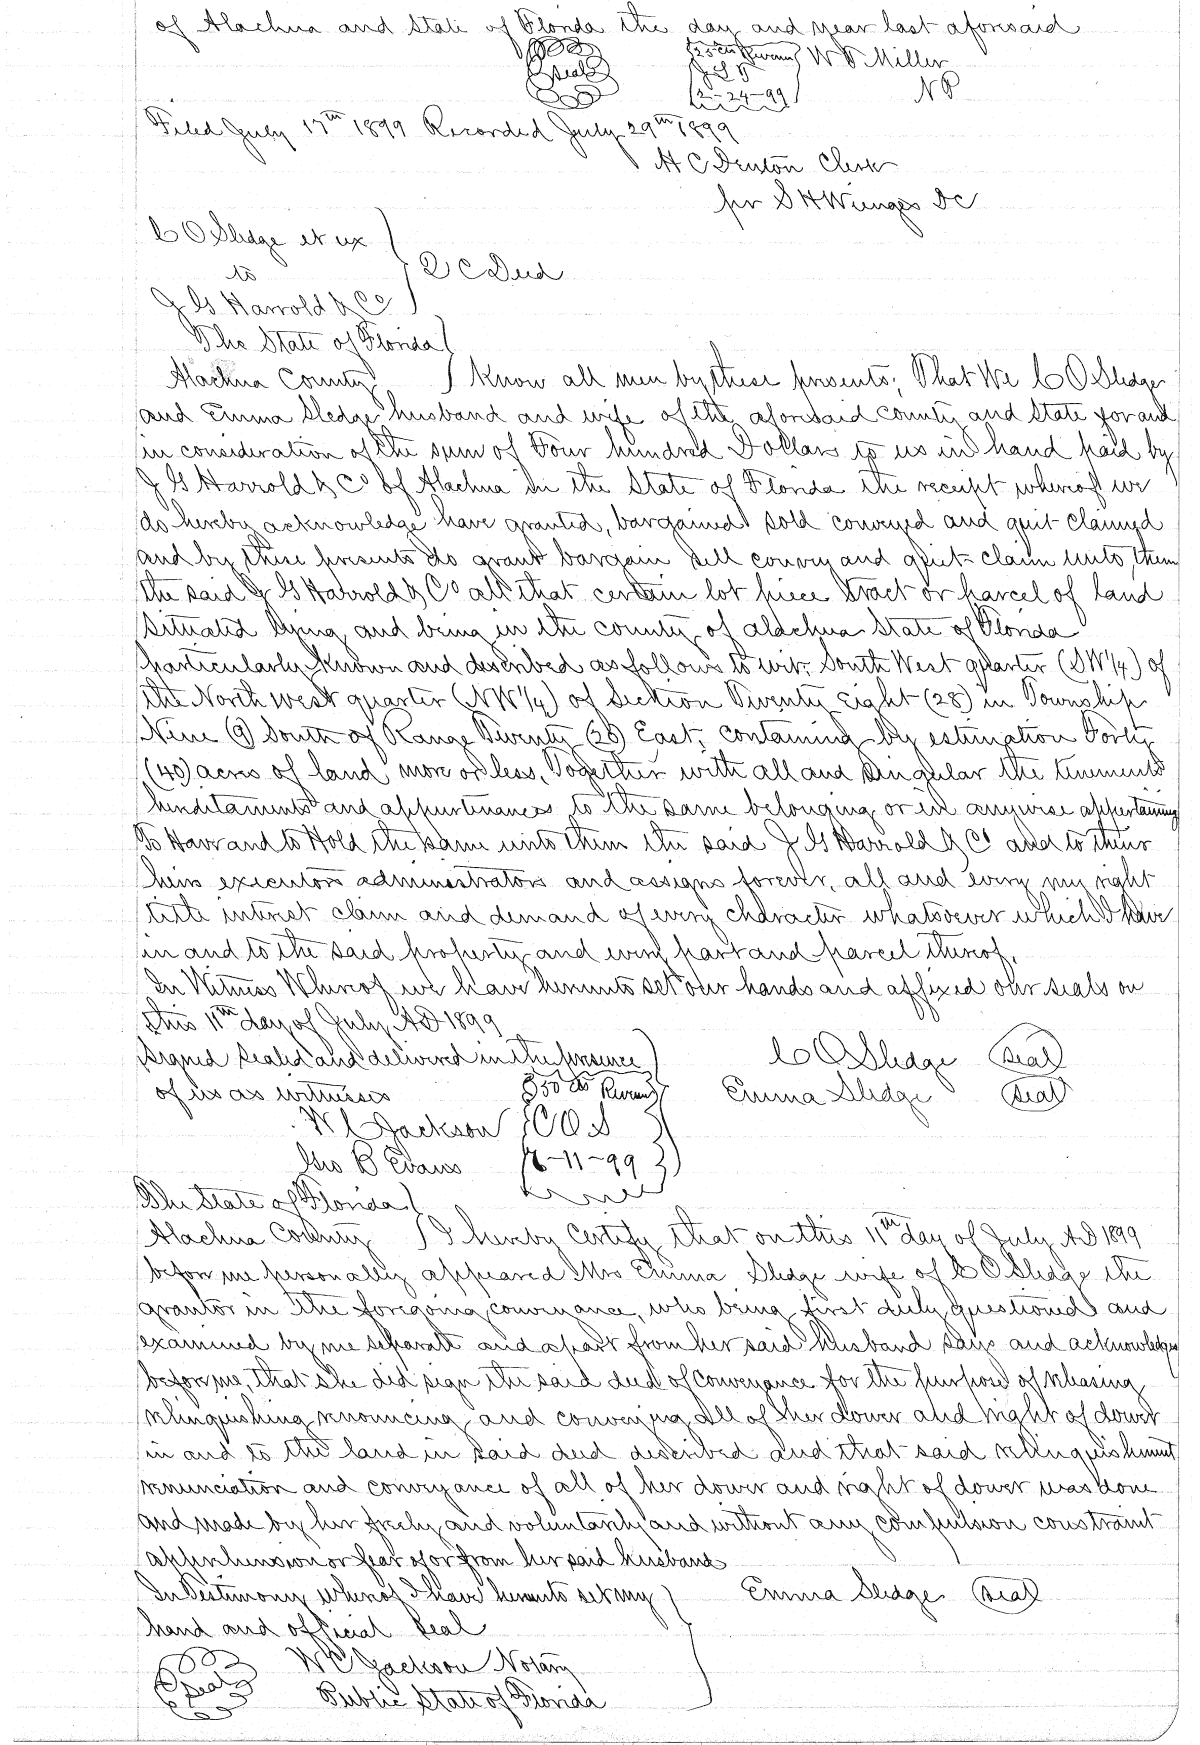 of Alachua and State of Florida the day and year last aforesaid
Seal 25 cts Revenue W P Miller
2-24-99 N P
Filed July 17th 1899 Recorded July 29th 1899
H C Denton Clerk
per S H Wienges DC
C O Sledge et ux
to Q C Deed
J G Harrold & Co
The State of Florida
Alachua County Know all men by these presents; That We C O Sledge
and Emma Sledge husband and wife of the aforesaid county and State for and
in consideration of the sum of Four hundred Dollars to us in hand paid by
J G Harrold & Co of Alachua in the State of Florida the receipt whereof we
do hereby acknowledge have granted, bargained sold conveyed and quit claimed
and by these presents do grant bargain sell convey and quit-claim unto them
the said J G Harrold & Co all that certain lot piece tract or parcel of land
situated lying and being in the county of Alachua State of Florida
particularly known and described as follows to wit; South West quarter (SW1/4) of
the North west quarter (NW1/4) of Section Twenty Eight (28) in Township
Nine (9) South of Range Twenty (20) East; containing by estimation Forty
(40) acres of land more or less, Together with all and singular the tenements
hereditaments and appurtenances to the same belonging or in anywise appertaining
To Have and to Hold the same unto them the said J G Harrold & Co and to their
heirs executors administrators and assigns forever, all and every my right
title interest claim and demand of every character whatsoever which I have
in and to the said property and every part and parcel thereof.
In Witness Whereof we have hereunto set our hands and affixed our seals on
this 11th day of July AD 1899
Signed Sealed and delivered in the presence C O Sledge Seal
of us as witnesses $50 cts Revenue Emma Sledge Seal
W C Jackson C O S
Geo B Evans 7-11-99
The State of Florida
Alachua County I hereby Certify that on this 11th day of July AD 1899
before me personally appeared Mrs Emma Sledge wife of C O Sledge the
grantor in the foregoing conveyance, who being first duly questioned and
examined by me separate and apart from her said husband says and acknowledges
before me, that she did sign the said deed of conveyance for the purpose of releasing
relinquishing renouncing and conveying all of her dower and right of dower
in and to the land in said deed described and that said relinquishment
renunciation and conveyance of all of her dower and right of dower was done
and made by her freely and voluntarily and without any compulsion constraint
apprehension or fear of or from her said husband
In Testimony whereof I have hereunto set my Emma Sledge Seal
hand and official Seal
Seal W C Jackson Notary
Public State of Florida